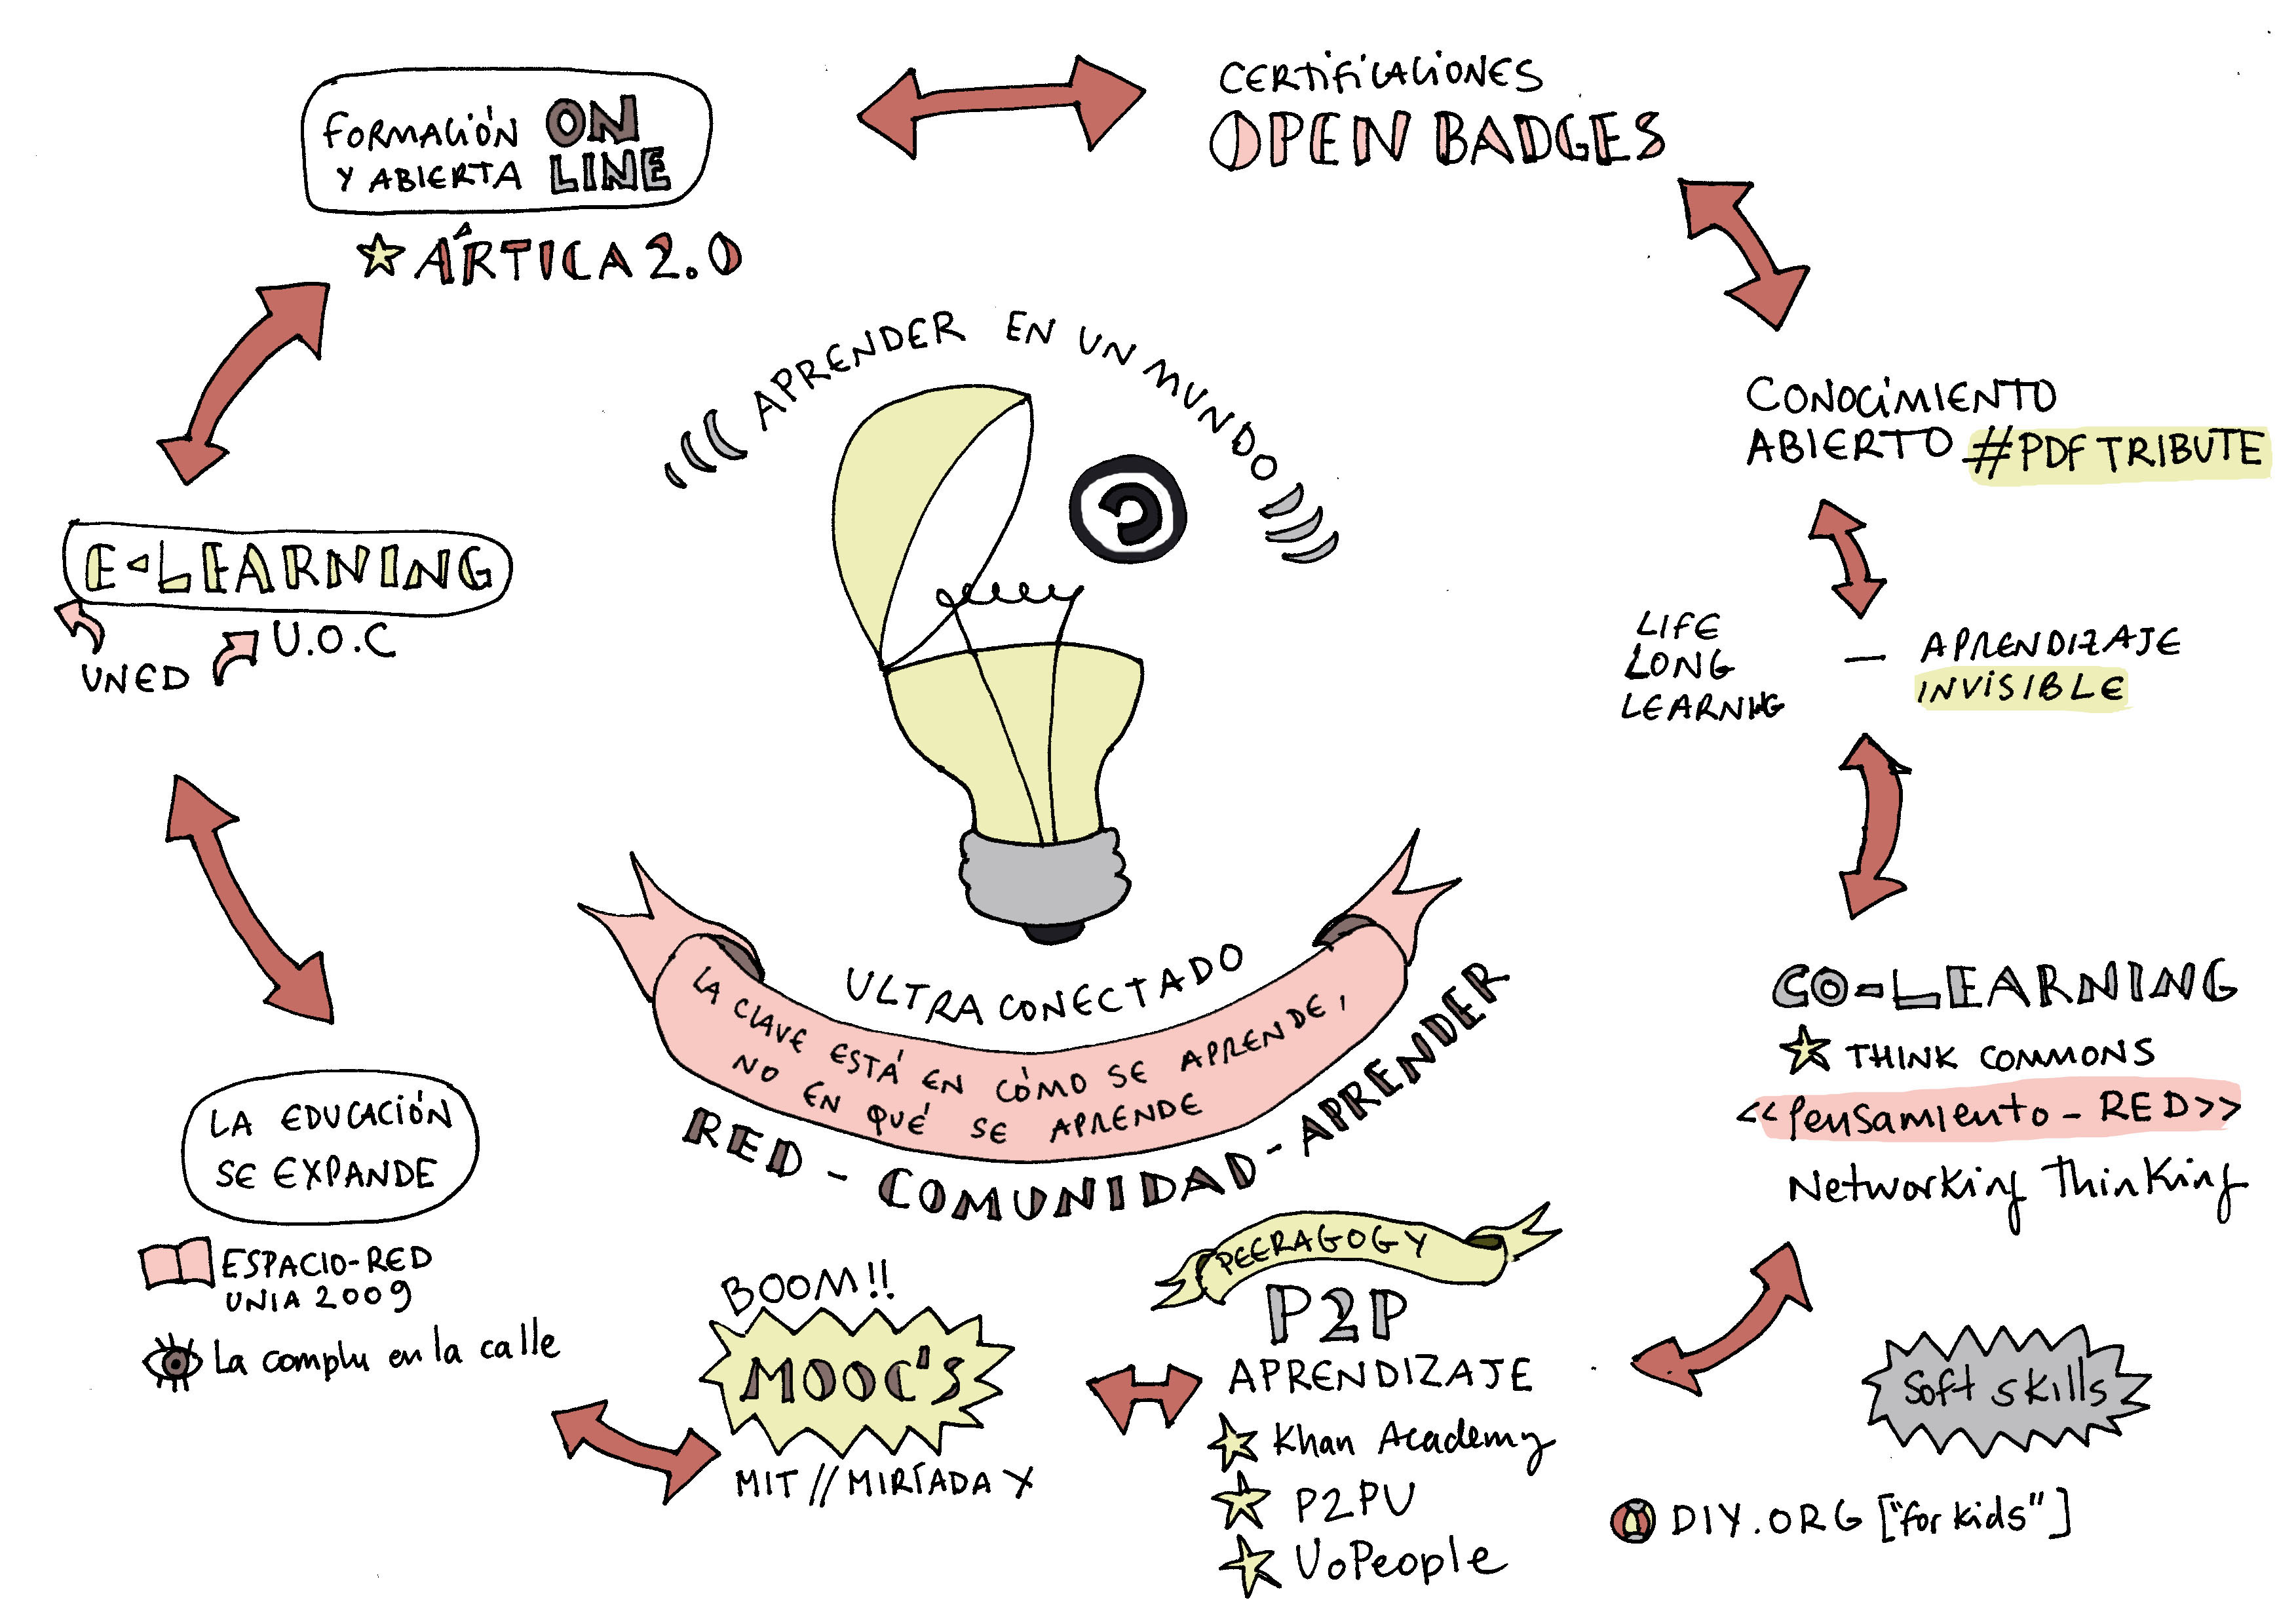 FORMACIÓN ON
Y ABIERTA LINE
ÁRTICA 2.0
CERTIFICACIONES
OPEN BADGES
CONOCIMIENTO
ABIERTO #PDFTRIBUTE
LIFE
LONG
LEARNING
— APRENDIZAJE
INVISIBLE
CO-LEARNING
THINK COMMONS
<<Pensamiento - RED>>
Networking Thinking
Soft skills
DIY.ORG ["for kids"]
PEERAGOGY
P2P
APRENDIZAJE
Khan Academy
P2PU
UoPeople
BOOM!!
MOOC'S
MIT // MIRÍADA X
LA EDUCACIÓN
SE EXPANDE
ESPACIO-RED
UNIA 2009
La complu en la calle
E-LEARNING
UNED
U.O.C
APRENDER EN UN MUNDO
ULTRA CONECTADO
LA CLAVE ESTÁ EN CÓMO SE APRENDE,
NO EN QUÉ SE APRENDE
RED - COMUNIDAD - APRENDER